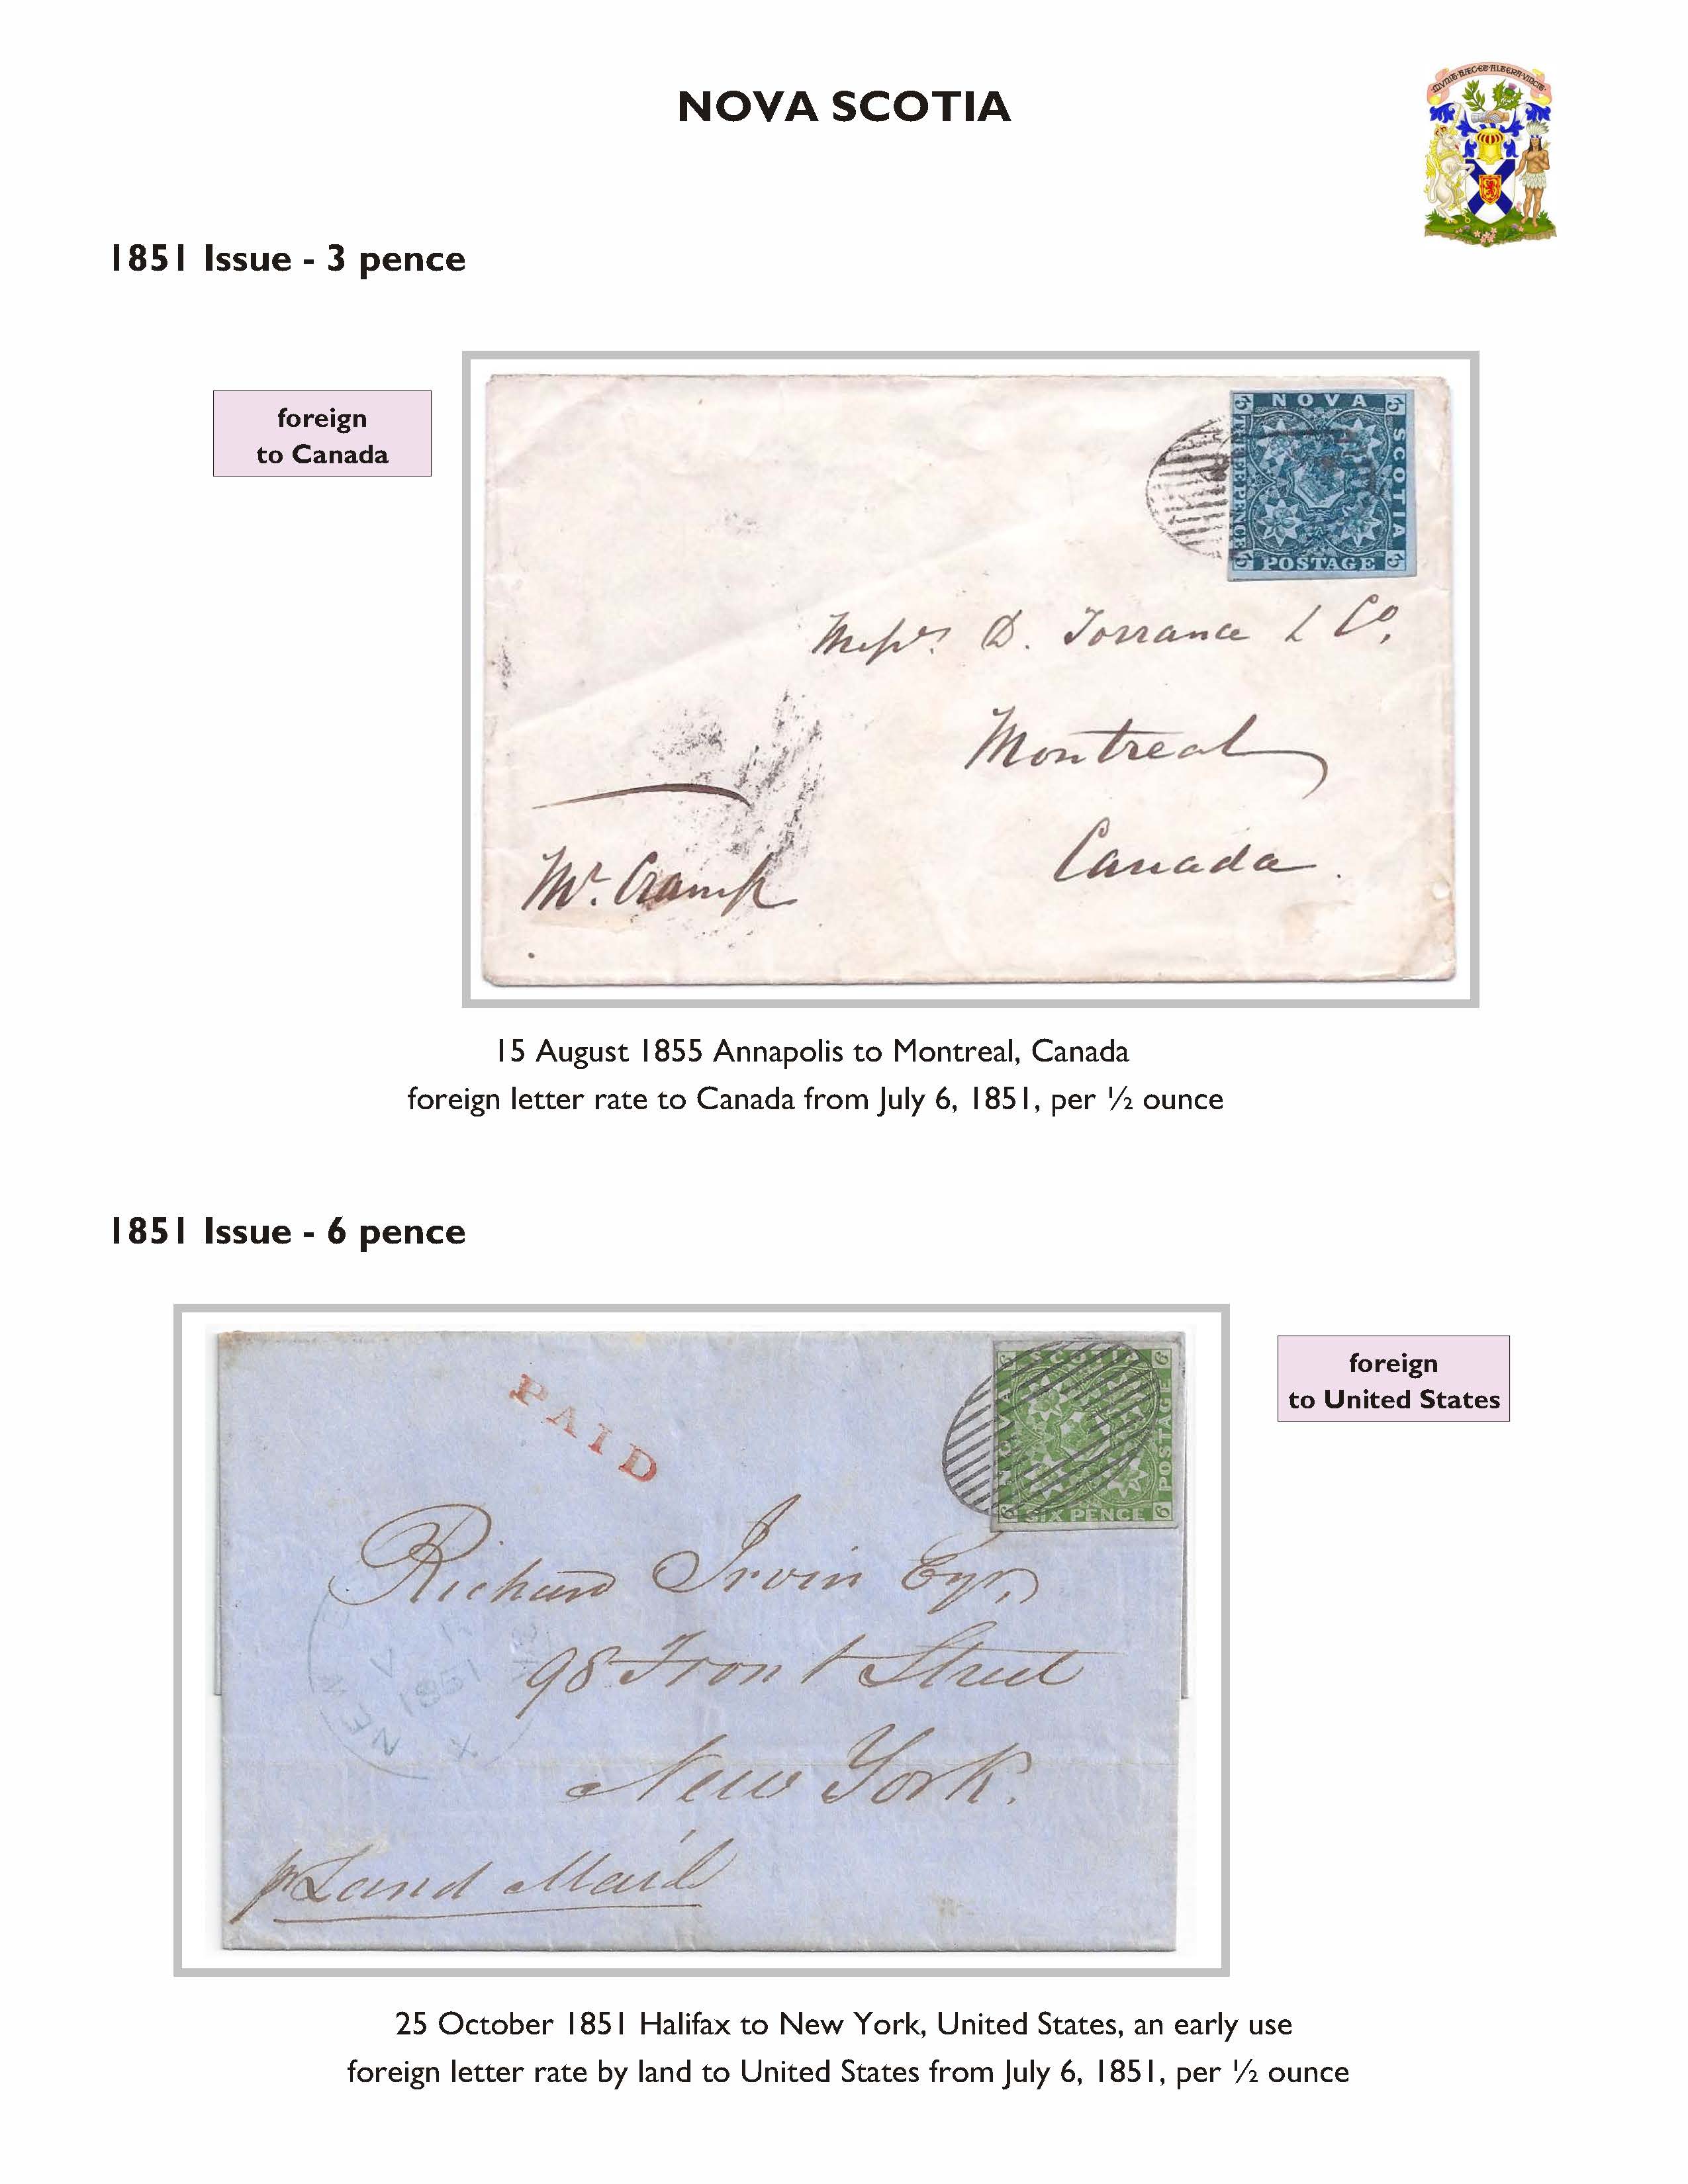 NOVA SCOTIA
1851 Issue - 3 pence
foreign
to Canada
NOVA
SCOTIA
THREE PENCE
POSTAGE
Messrs. D. Torrance & Co.
Montreal
Canada.
Mr. Cramp
15 August 1855 Annapolis to Montreal, Canada
foreign letter rate to Canada from July 6, 1851, per ½ ounce
1851 Issue - 6 pence
foreign
to United States
PAID
SCOTIA
POSTAGE
SIX PENCE
Richard Irvin Esqr,
98 Front Street
New York.
pr Land Mail
NEW
1851
25 October 1851 Halifax to New York, United States, an early use
foreign letter rate by land to United States from July 6, 1851, per ½ ounce